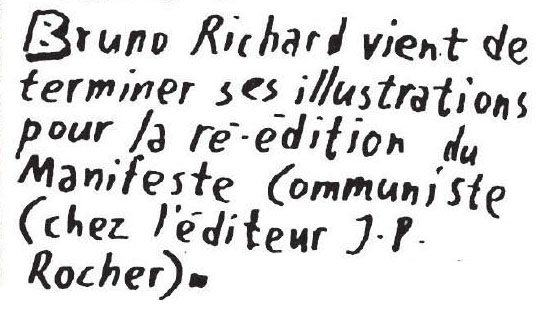 Bruno Richard vient de
terminer ses illustrations
pour la ré-édition du
Manifeste Communiste
(chez l'éditeur J.P.
Rocher).